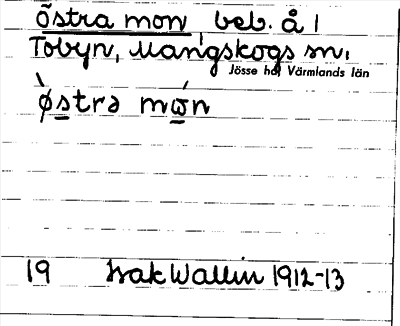 östra mon, beb. å 1
Tobyn, Mangskogs sn.
Jösse hd, Värmlands län
østrə mωn
19 Isak Wallin 1912-13